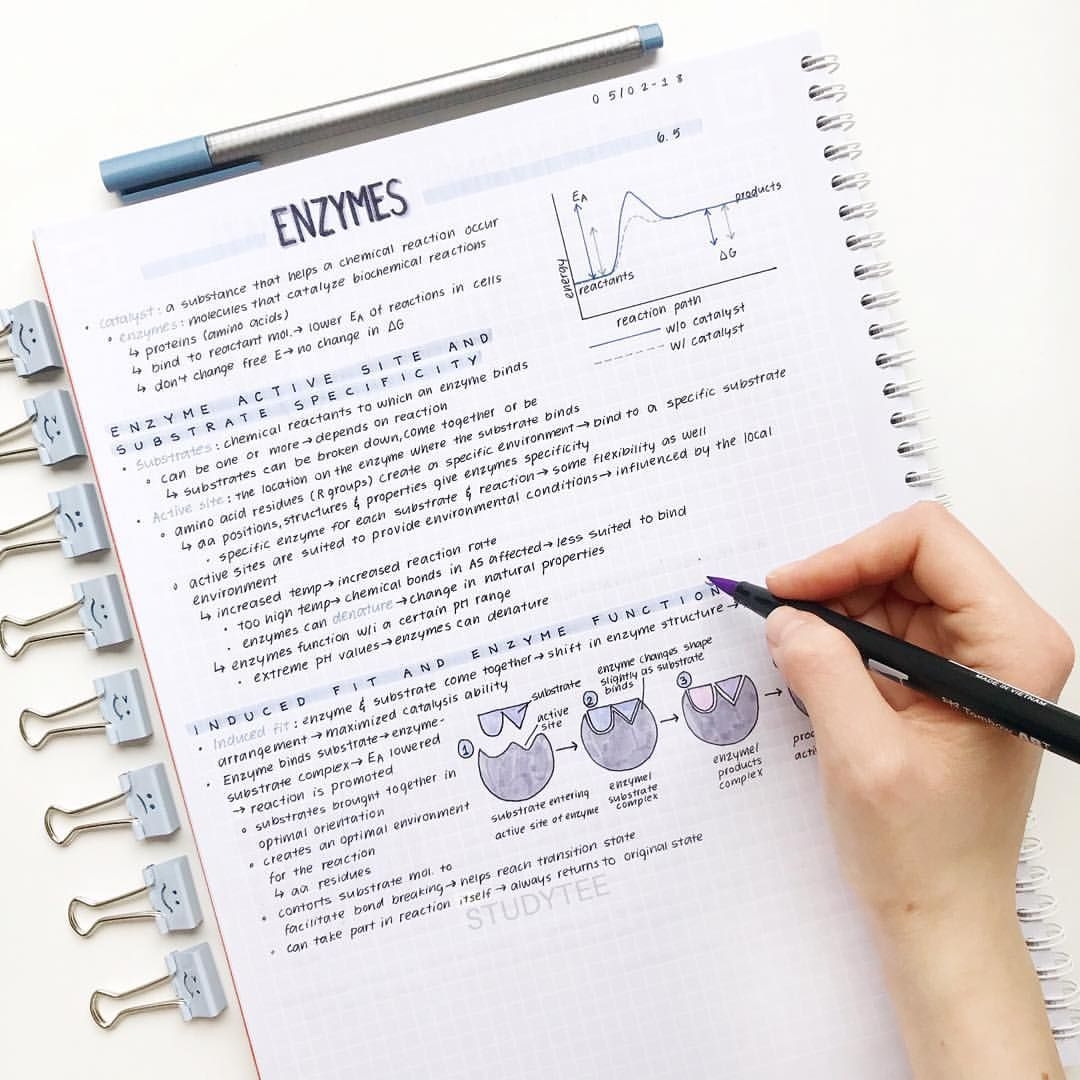 05/02-18
6.5
ENZYMES
• catalyst: a substance that helps a chemical reaction occur
• enzymes: molecules that catalyze biochemical reactions
↳ proteins (amino acids)
↳ bind to reactant mol. → lower EA of reactions in cells
↳ don't change free E → no change in ΔG
EA
products
ΔG
reactants
energy
reaction path
w/o catalyst
w/ catalyst
ENZYME ACTIVE SITE AND
SUBSTRATE SPECIFICITY
• Substrates: chemical reactants to which an enzyme binds
• can be one or more → depends on reaction
↳ substrates can be broken down, come together or be
• Active site: the location on the enzyme where the substrate binds
• amino acid residues (R groups) create a specific environment → bind to a specific substrate
↳ aa positions, structures & properties give enzymes specificity
• specific enzyme for each substrate & reaction → some flexibility as well
• active sites are suited to provide environmental conditions → influenced by the local
environment
↳ increased temp → increased reaction rate
• too high temp → chemical bonds in AS affected → less suited to bind
• enzymes can denature → change in natural properties
↳ enzymes function w/i a certain pH range
• extreme pH values → enzymes can denature
INDUCED FIT AND ENZYME FUNCTION
• Induced fit: enzyme & substrate come together → shift in enzyme structure →
arrangement → maximized catalysis ability
• Enzyme binds substrate → enzyme-
substrate complex → EA lowered
→ reaction is promoted
• substrates brought together in
optimal orientation
• creates an optimal environment
for the reaction
↳ aa residues
• contorts substrate mol. to
facilitate bond breaking → helps reach transition state
• can take part in reaction itself → always returns to original state
1
substrate
active
site
substrate entering
active site of enzyme
2
enzyme changes shape
slightly as substrate
binds
enzyme/
substrate
complex
3
enzyme/
products
complex
STUDYTEE
MADE IN VIETNAM